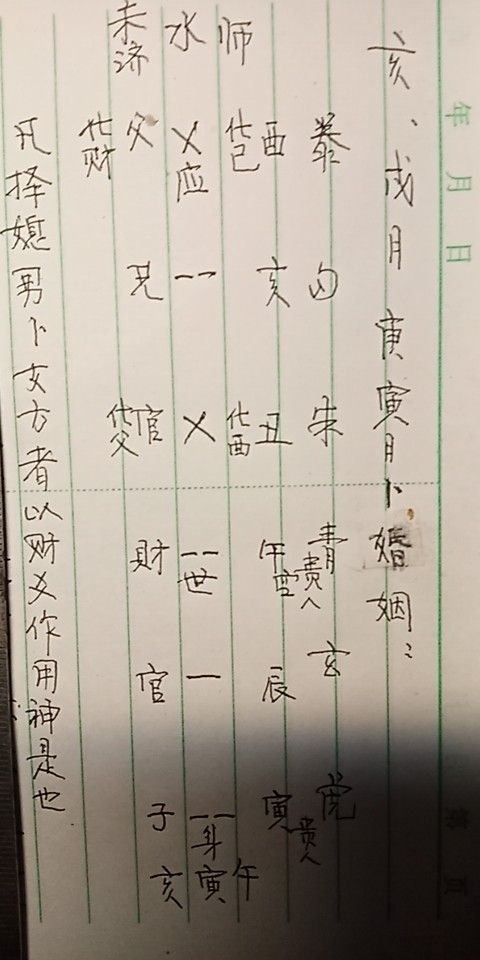 年 月 日
亥、戌月 庚寅月卜婚姻:
勾 朱 青 贵人 玄 虎 贵人
化巳 酉 亥 化酉 丑 午 空 辰 寅
师
水
乂应 -- 乂 --世 — --身
未济
化财 父 兄 化父 官 財 官 子
亥 寅 午
凡择媳男卜女方者以财爻作用神是也
第 页